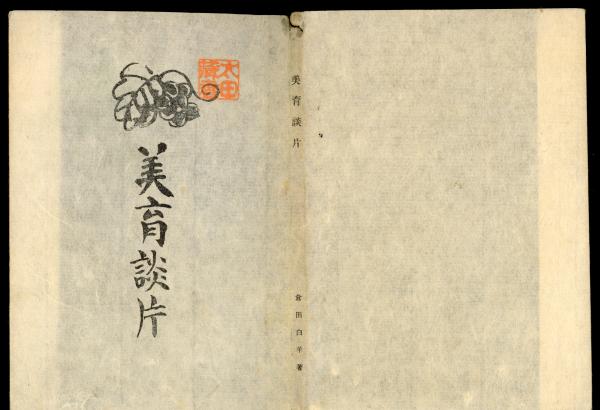 太田
美育談片
美育談片
倉田白羊著